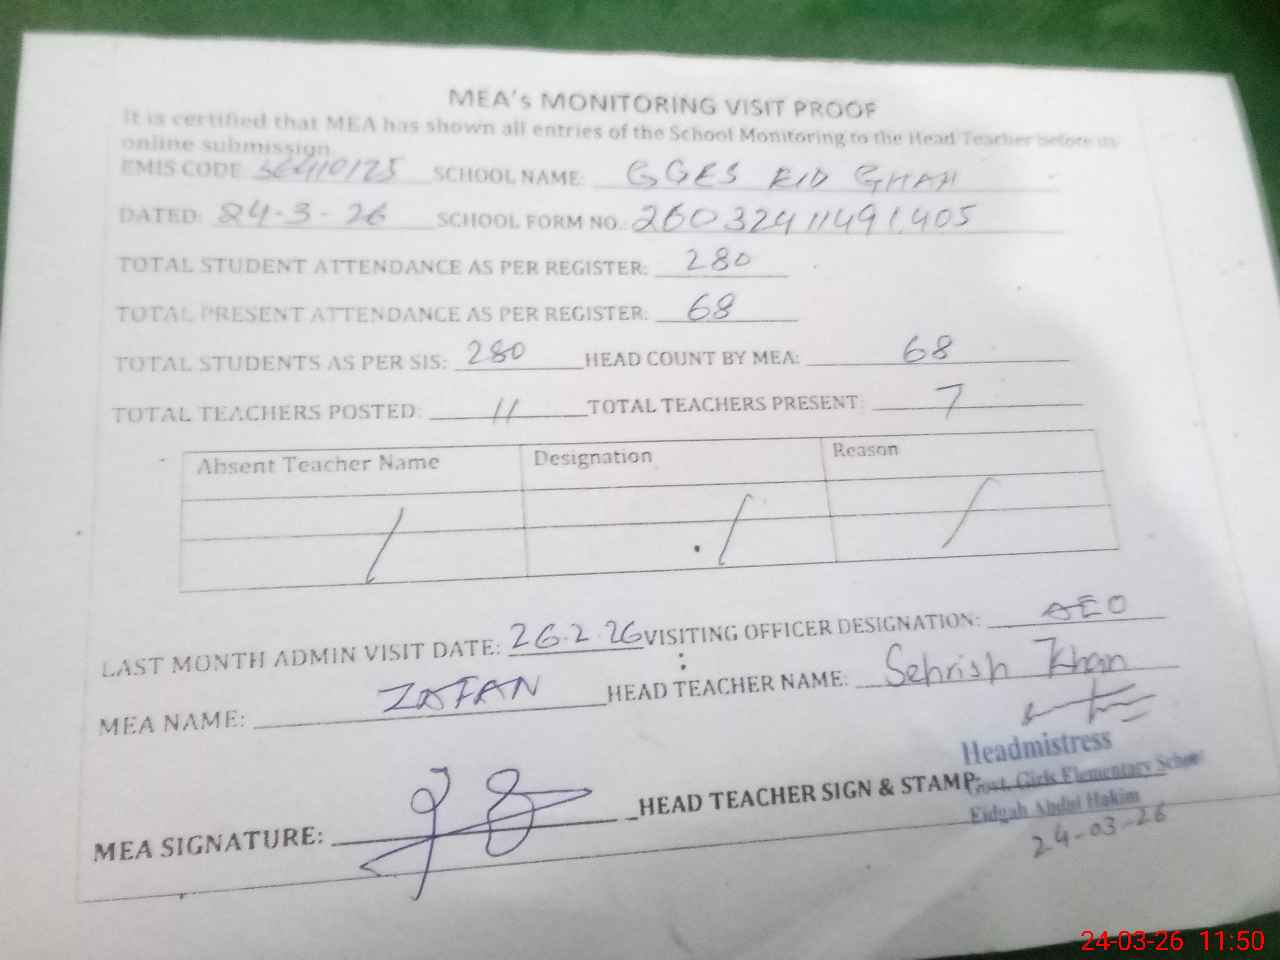 MEA's MONITORING VISIT PROOF
It is certified that MEA has shown all entries of the School Monitoring to the Head Teacher before its
online submission
EMIS CODE 36410125 SCHOOL NAME: GGES EID GHAH
DATED: 24-3-26 SCHOOL FORM NO.: 26032411491405
TOTAL STUDENT ATTENDANCE AS PER REGISTER: 280
TOTAL PRESENT ATTENDANCE AS PER REGISTER: 68
TOTAL STUDENTS AS PER SIS: 280 HEAD COUNT BY MEA: 68
TOTAL TEACHERS POSTED: 11 TOTAL TEACHERS PRESENT: 7
Absent Teacher Name Designation Reason
LAST MONTH ADMIN VISIT DATE: 26.2.26 VISITING OFFICER DESIGNATION: AEO
MEA NAME: ZAFAR HEAD TEACHER NAME: Sehrish Khan
Headmistress
MEA SIGNATURE: HEAD TEACHER SIGN & STAMP: Govt. Girls Elementary School
Eidgah Abdul Hakim
24-03-26
24-03-26 11:50